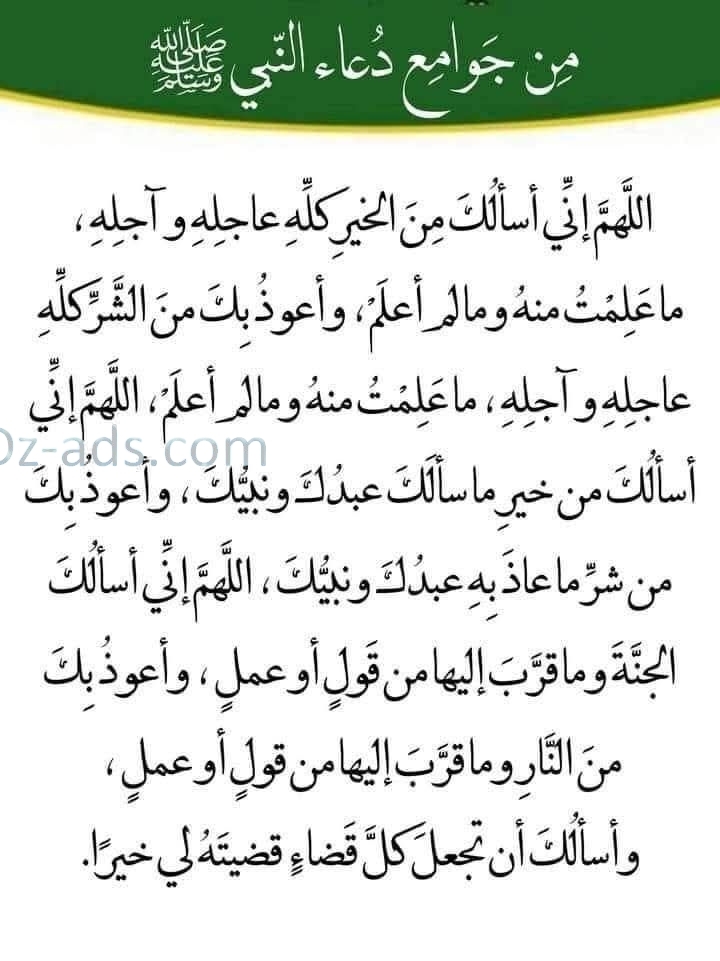 مِن جَوامِع دُعاء النّبي ﷺ
اللَّهمَّ إنِّي أسألُكَ مِنَ الخيرِ كلِّهِ عاجلِهِ وآجلِهِ ،
ما عَلِمْتُ منهُ وما لم أعلَمْ ، وأعوذُ بِكَ منَ الشَّرِّ كلِّهِ
عاجلِهِ وآجلِهِ ، ما عَلِمْتُ منهُ وما لم أعلَمْ ، اللَّهمَّ إنِّي
Dz-ads.com
أسألُكَ من خيرِ ما سألَكَ عبدُكَ ونبيُّكَ ، وأعوذُ بِكَ
من شرِّ ما عاذَ بِهِ عبدُكَ ونبيُّكَ ، اللَّهمَّ إنِّي أسألُكَ
الجنَّةَ وما قرَّبَ إليها من قَولٍ أو عملٍ ، وأعوذُ بِكَ
منَ النَّارِ وما قرَّبَ إليها من قولٍ أو عملٍ ،
وأسألُكَ أن تجعلَ كلَّ قَضاءٍ قضيتَهُ لي خيرًا.